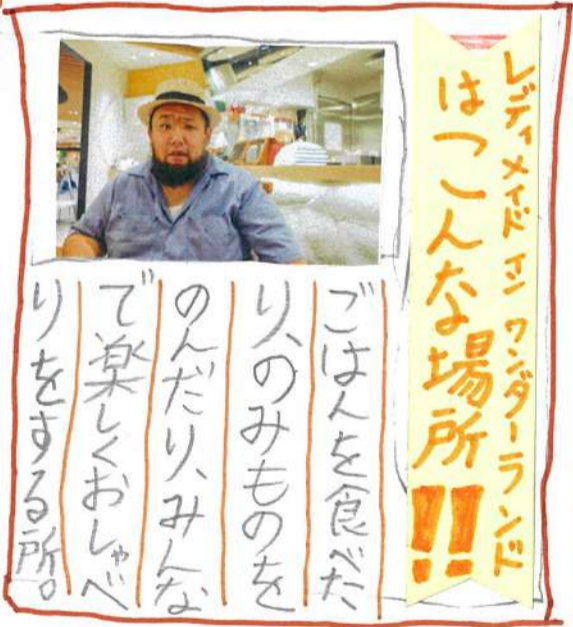 レディメイド イン ワンダーランド
はこんな場所!!
ごはんを食べた
り、のみものを
のんだり、みんな
で楽しくおしゃべ
りをする所。